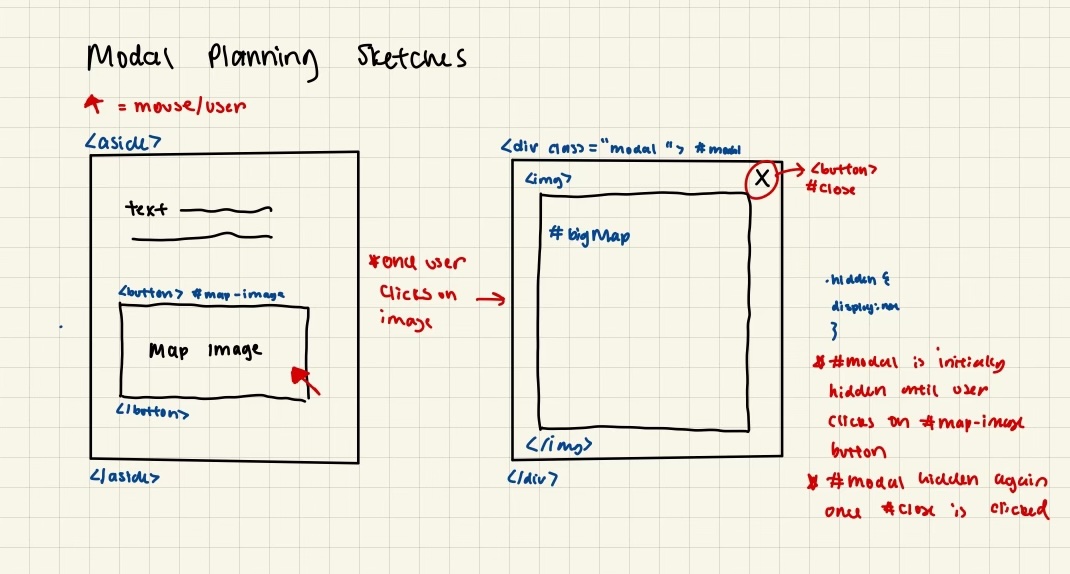 Modal Planning Sketches
= mouse/user
<aside>
text
<button> #map-image
Map Image
</button>
</aside>
*once user
clicks on
image
<div class="modal"> #modal
<img>
#bigMap
</img>
</div>
X
<button>
#close
.hidden {
display:none
}
* #modal is initially
hidden until user
clicks on #map-image
button
* #modal hidden again
once #close is clicked